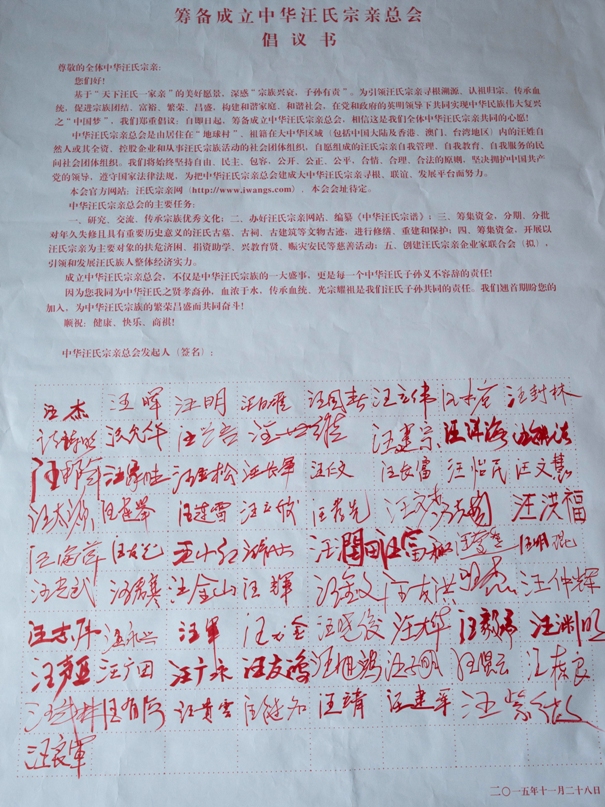 筹备成立中华汪氏宗亲总会
倡议书
尊敬的全体中华汪氏宗亲：
您们好！
基于“天下汪氏一家亲”的美好愿景，深感“宗族兴衰，子孙有责”。为引领汪氏宗亲寻根溯源、认祖归宗、传承血
统，促进宗族团结、富裕、繁荣、昌盛，构建和谐家庭、和谐社会，在党和政府的英明领导下共同实现中华民族伟大复兴
之“中国梦”，我们郑重倡议：自即日起，筹备成立中华汪氏宗亲总会，相信这是我们全体中华汪氏宗亲共同的心愿！
中华汪氏宗亲总会是由居住在“地球村”、祖籍在大中华区域（包括中国大陆及香港、澳门、台湾地区）内的汪姓自
然人或其全资、控股企业和从事汪氏宗族活动的社会团体组织，自愿组成的汪氏宗亲自我管理、自我教育、自我服务的民
间社会团体组织。我们将始终坚持自由、民主、包容，公开、公正、公平，合情、合理、合法的原则，坚决拥护中国共产
党的领导，遵守国家法律法规，为把中华汪氏宗亲总会建成大中华汪氏宗亲寻根、联谊、发展平台而努力。
本会官方网站：汪氏宗亲网（http://www.iwangs.com），本会会址待定。
中华汪氏宗亲总会的主要任务：
一、研究、交流、传承宗族优秀文化；二、办好汪氏宗亲网站、编纂《中华汪氏宗谱》；三、筹集资金，分期、分批
对年久失修且具有重要历史意义的汪氏古墓、古祠、古建筑等文物古迹，进行修缮、重建和保护；四、筹集资金，开展以
汪氏宗亲为主要对象的扶危济困、捐资助学、兴教育贤、赈灾安民等慈善活动；五、创建汪氏宗亲企业家联合会（拟），
引领和发展汪氏族人整体经济实力。
成立中华汪氏宗亲总会，不仅是中华汪氏宗族的一大盛事，更是每一个中华汪氏子孙义不容辞的责任！
因为您我同为中华汪氏之贤孝裔孙，血浓于水，传承血统、光宗耀祖是我们汪氏子孙共同的责任。我们翘首期盼您的
加入，为中华汪氏宗族的繁荣昌盛而共同奋斗！
顺祝：健康、快乐、商祺！
中华汪氏宗亲总会发起人（签名）：
汪杰 汪晖 汪明 汪国春 汪立伟 汪封林
汪建宗
汪金松 汪长军 汪仁文 汪长富 汪怡民 汪文慧
汪太源 汪建雷 汪洪福
汪金山 汪辉 汪仲辉
汪志丹 汪军 汪晓俊 汪大华 汪毅 汪渊明
汪广田 汪广永 汪友鸿 汪祖鸿
汪贵云 汪靖 汪建平
汪良军
二〇一五年十一月二十八日